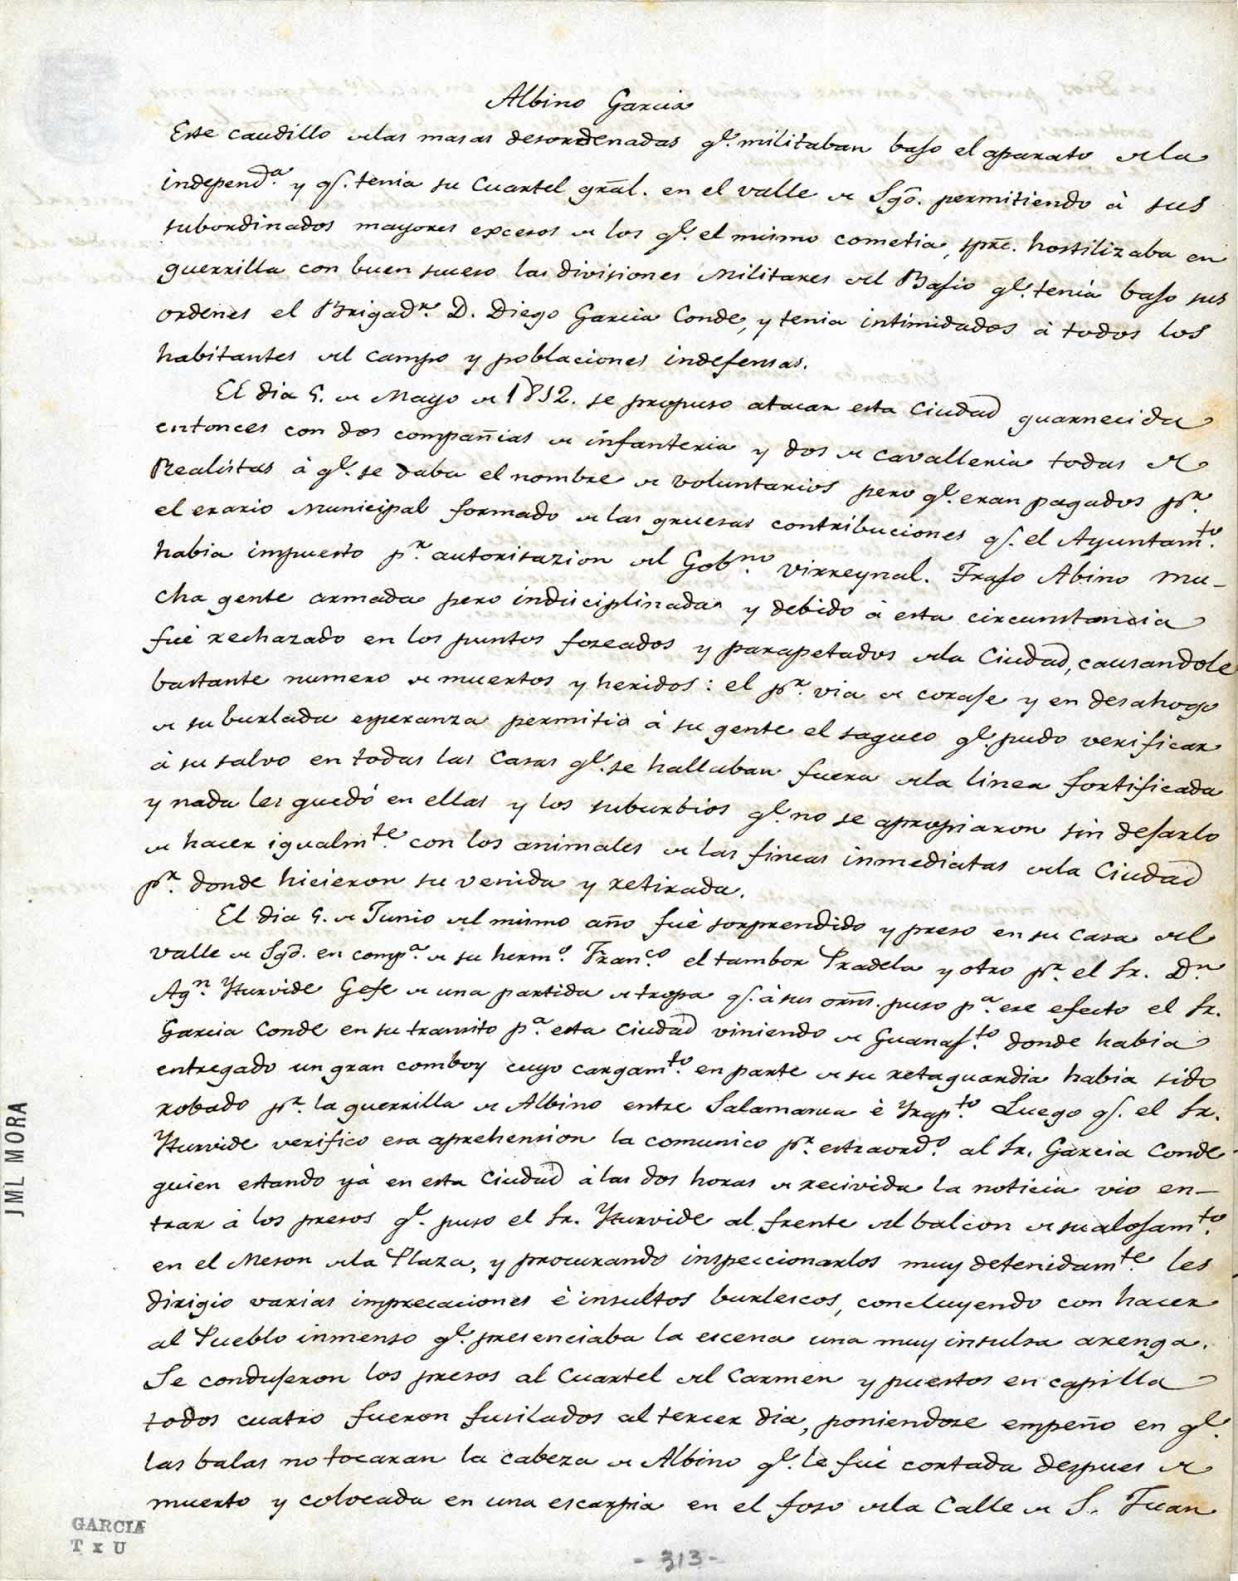 Albino Garcia
Este caudillo de las masas desordenadas qe. militaban bajo el aparato de la
independa. y qe. tenia su Cuartel gral. en el valle de Sgo. permitiendo à sus
subordinados mayores excesos de los qe. el mismo cometia, spre. hostilizaba en
guerrilla con buen suceso las divisiones Militares del Bajio qe. tenia bajo sus
ordenes el Brigadr. D. Diego Garcia Conde, y tenia intimidados à todos los
habitantes del campo y poblaciones indefensas.
El dia 5. de Mayo de 1812. se propuso atacar esta Ciudad guarnecida
entonces con dos compañias de infanteria y dos de cavalleria todas de
Realistas à qe. se daba el nombre de voluntarios pero qe. eran pagados pr.
el erario Municipal formado de las gruesas contribuciones qe. el Ayuntamto.
habia impuesto pr. autorisazion del Gobno. virreynal. Trajo Abino mu-
cha gente armada pero indisciplinada y debido à esta circunstancia
fué rechazado en los puntos foseados y parapetados de la Ciudad, causandole
bastante numero de muertos y heridos: el pr. via de coraje y en desahogo
de su burlada esperanza permitio à su gente el saqueo qe. pudo verificar
à su salvo en todas las Casas qe. se hallaban fuera de la linea fortificada
y nada les quedó en ellas y los suburbios qe. no se apropiaron sin dejarlo
de hacer igualmte. con los animales de las fincas inmediatas de la Ciudad
pr. donde hicieron su venida y retirada.
El dia 5. de Junio del mismo año fué sorprendido y preso en su casa del
valle de Sgo. en compa. de su hermo. Franco. el tambor Pradela y otro pr. el Sr. Dn
Agn. Yturvide Gefe de una partida de tropa qe. à sus orns. puso pa. ese efecto el Sr.
Garcia Conde en su transito pa. esta Ciudad viniendo de Guanajto. donde habia
entregado un gran comboy cuyo cargamto. en parte de su retaguardia habia sido
robado pr. la guerrilla de Albino entre Salamanca è Yrapto. Luego qe. el Sr.
Yturvide verifico esa aprehension la comunico pr. estraordo. al Sr. Garcia Conde
quien estando yá en esta Ciudad à las dos horas de recivida la noticia vio en-
trar à los presos qe. puso el Sr. Yturvide al frente del balcon de su alojamto.
en el Meson de la Plaza, y procurando inspeccionarlos muy detenidamte. les
dirigio varias imprecaciones è insultos burlescos, concluyendo con hacer
al Pueblo inmenso qe. presenciaba la escena una muy insulsa arenga.
Se condujeron los presos al Cuartel del Carmen y puestos en capilla
todos cuatro fueron fusilados al tercer dia, poniendose empeño en qe.
las balas no tocaran la cabeza de Albino qe. le fué cortada despues de
muerto y colocada en una escarpia en el foso de la Calle de S. Juan
JML MORA
GARCIA
T x U
- 313 -